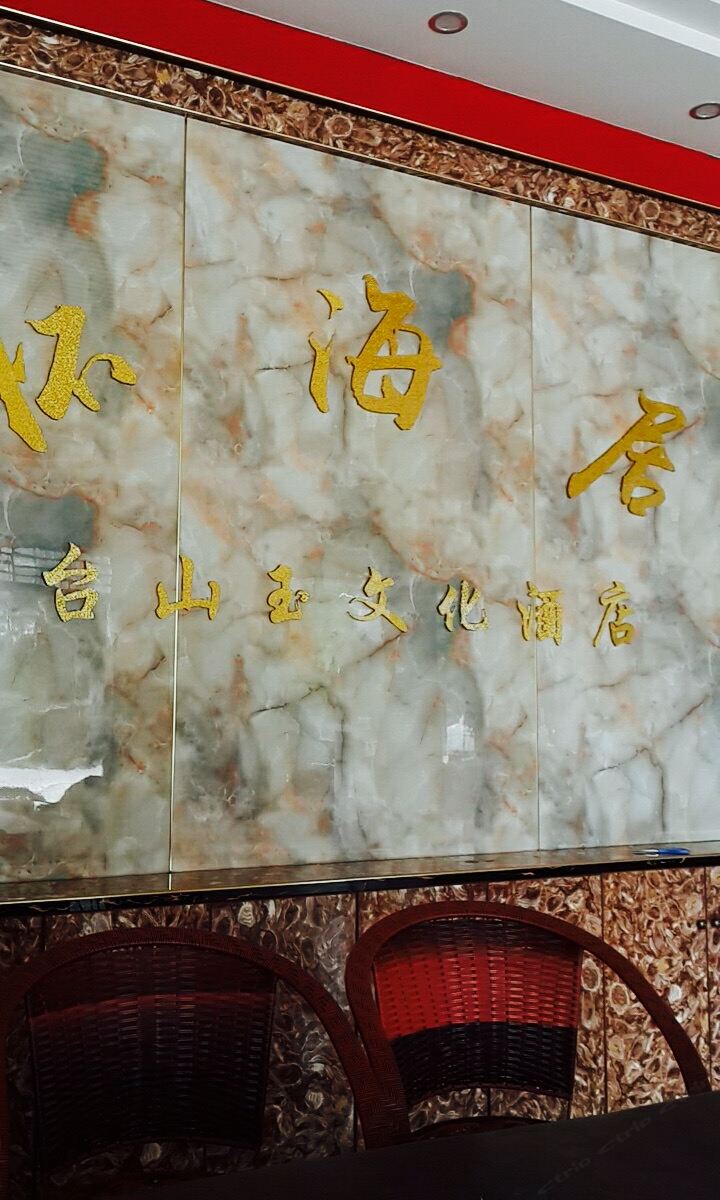 怀海居
台山玉文化酒店